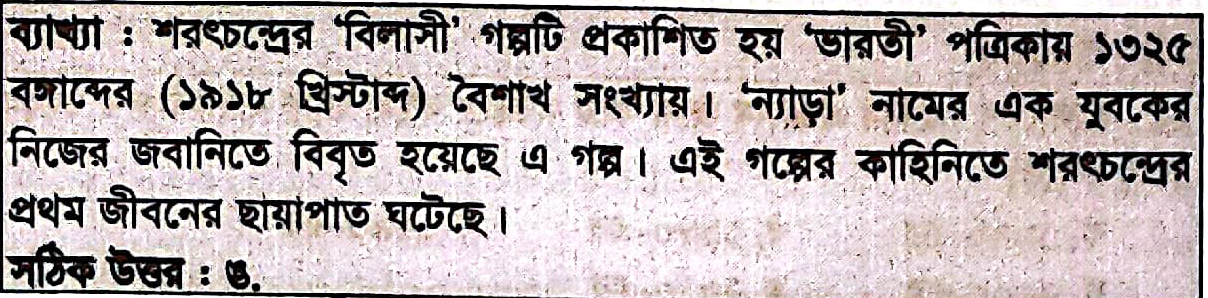 ব্যাখ্যা : শরৎচন্দ্রের ‘বিলাসী’ গল্পটি প্রকাশিত হয় ‘ভারতী’ পত্রিকায় ১৩২৫
বঙ্গাব্দের (১৯১৮ খ্রিস্টাব্দ) বৈশাখ সংখ্যায়। ‘ন্যাড়া’ নামের এক যুবকের
নিজের জবানিতে বিবৃত হয়েছে এ গল্প। এই গল্পের কাহিনিতে শরৎচন্দ্রের
প্রথম জীবনের ছায়াপাত ঘটেছে।
সঠিক উত্তর : ঙ.